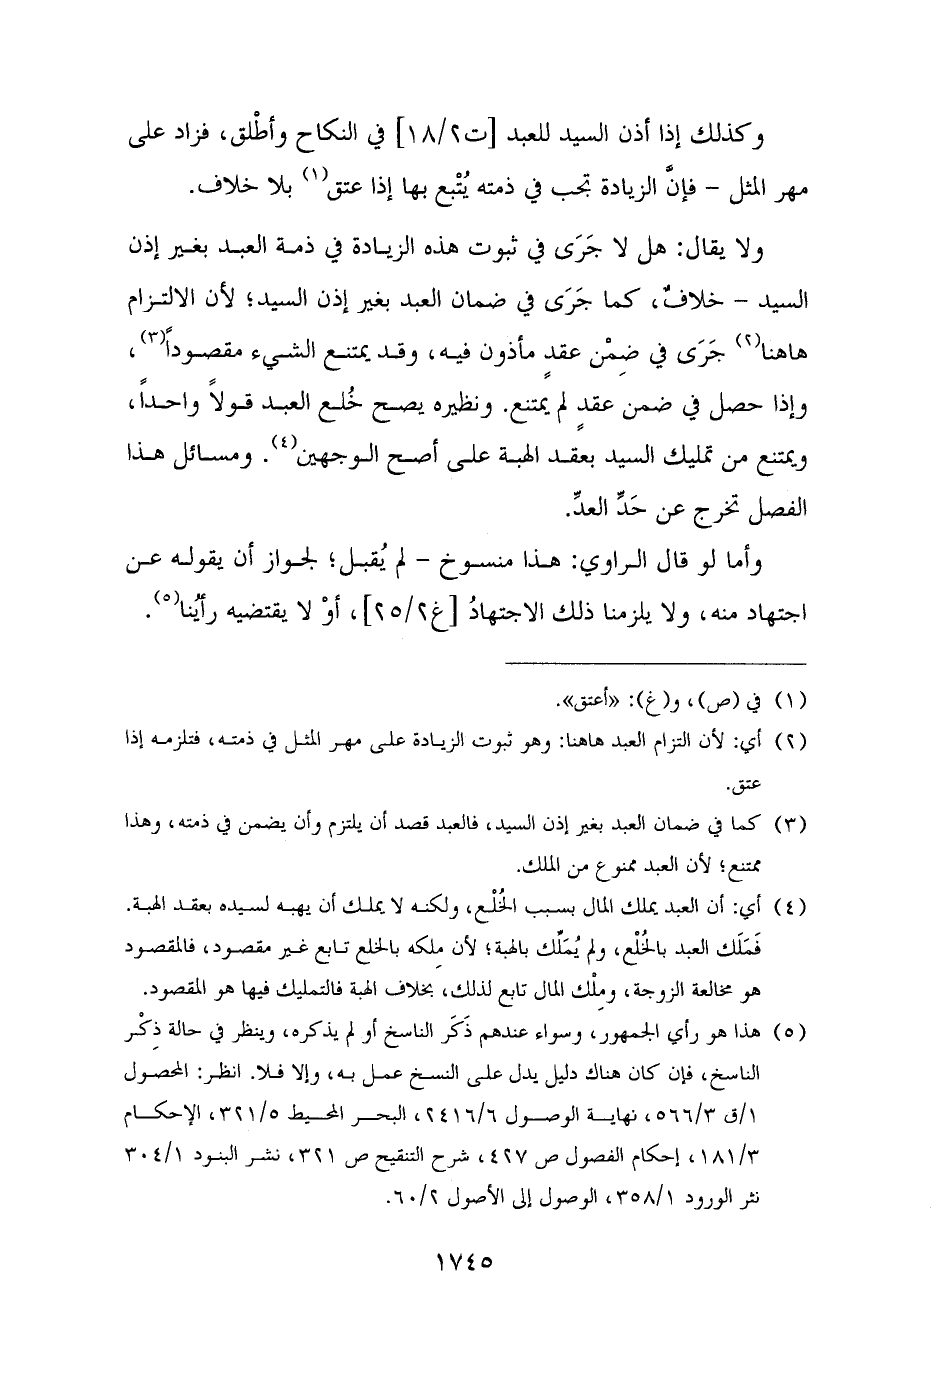 وكذلك إذا أذن السيد للعبد [ت١٨/٢] في النكاح وأطْلق، فزاد على
مهر المثل – فإنَّ الزيادة تجب في ذمته يُتْبع بها إذا عتق(١) بلا خلاف.
ولا يقال: هل لا جَرَى في ثبوت هذه الزيادة في ذمة العبد بغير إذن
السيد – خلافٌ، كما جَرَى في ضمان العبد بغير إذن السيد؛ لأن الالتزام
هاهنا(٢) جَرَى في ضِمْن عقدٍ مأذون فيه، وقد يمتنع الشيء مقصوداً(٣)،
وإذا حصل في ضمن عقدٍ لم يمتنع. ونظيره يصح خُلع العبد قولاً واحداً،
ويمتنع من تمليك السيد بعقد الهبة على أصح الوجهين(٤). ومسائل هذا
الفصل تخرج عن حَدِّ العدِّ.
وأما لو قال الراوي: هذا منسوخ – لم يُقبل؛ لجواز أن يقوله عن
اجتهاد منه، ولا يلزمنا ذلك الاجتهادُ [غ٢٥/٢]، أوْ لا يقتضيه رأيُنا(٥).
(١) في (ص)، و(غ): «أعتق».
(٢) أي: لأن التزام العبد هاهنا: وهو ثبوت الزيادة على مهر المثل في ذمته، فتلزمه إذا
عتق.
(٣) كما في ضمان العبد بغير إذن السيد، فالعبد قصد أن يلتزم وأن يضمن في ذمته، وهذا
ممتنع؛ لأن العبد ممنوع من الملك.
(٤) أي: أن العبد يملك المال بسبب الخُلْع، ولكنه لا يملك أن يهبه لسيده بعقد الهبة.
فَمَلَك العبد بالخُلْع، ولم يُمَلِّك بالهبة؛ لأن ملكه بالخلع تابع غير مقصود، فالمقصود
هو مخالعة الزوجة، ومِلْك المال تابع لذلك، بخلاف الهبة فالتمليك فيها هو المقصود.
(٥) هذا هو رأي الجمهور، وسواء عندهم ذَكَر الناسخ أو لم يذكره، وينظر في حالة ذِكْر
الناسخ، فإن كان هناك دليل يدل على النسخ عمل به، وإلا فلا. انظر: المحصول
١/ق ٥٦٦/٣، نهاية الوصول ٢٤١٦/٦، البحر المحيط ٣٢١/٥، الإحكام
١٨١/٣، إحكام الفصول ص ٤٢٧، شرح التنقيح ص ٣٢١، نشر البنود ٣٠٤/١
نثر الورود ٣٥٨/١، الوصول إلى الأصول ٦٠/٢.
١٧٤٥